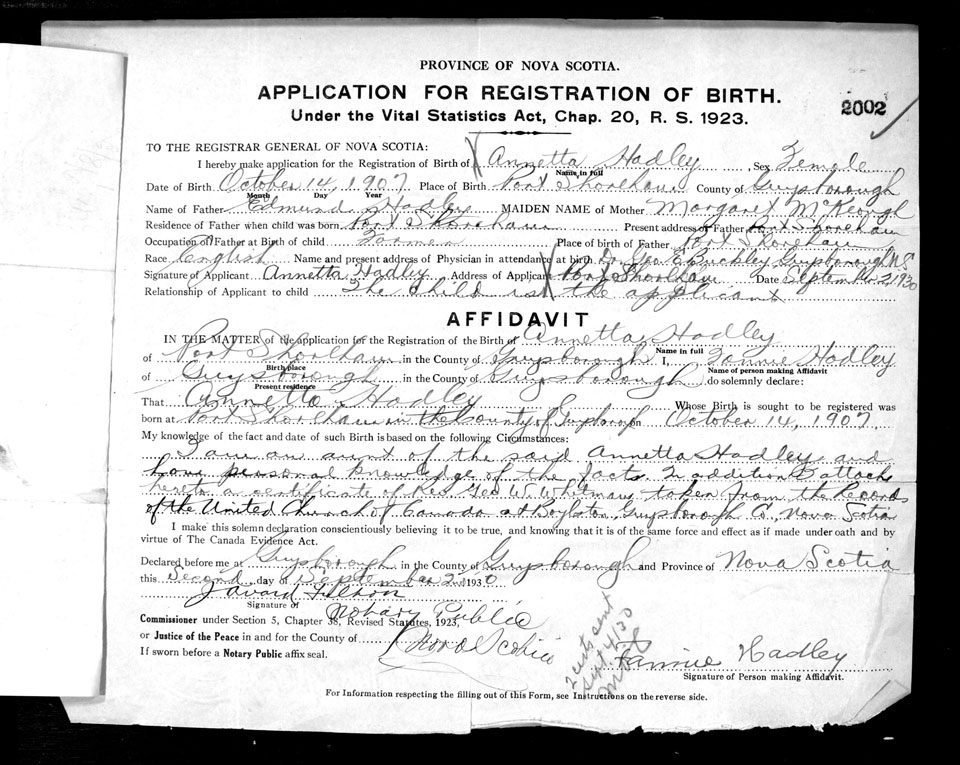 PROVINCE OF NOVA SCOTIA.
APPLICATION FOR REGISTRATION OF BIRTH.
2002
Under the Vital Statistics Act, Chap. 20, R. S. 1923.
TO THE REGISTRAR GENERAL OF NOVA SCOTIA:
I hereby make application for the Registration of Birth of Annetta Hadley Sex Female
Name in full
Date of Birth October 14, 1907 Place of Birth Port Shoreham County of Guysborough
Month Day Year
Name of Father Edmund Hadley MAIDEN NAME of Mother Margaret McKeough
Residence of Father when child was born Port Shoreham Present address of Father Port Shoreham
Occupation of Father at Birth of child Farmer Place of birth of Father Port Shoreham
Race English Name and present address of Physician in attendance at birth Dr. Geo E Buckley Guysborough N S
Signature of Applicant Annetta Hadley Address of Applicant Port Shoreham Date September 2, 1930
Relationship of Applicant to child The Child is the applicant
AFFIDAVIT
IN THE MATTER of the application for the Registration of the Birth of Annetta Hadley
of Port Shoreham in the County of Guysborough I, Fannie Hadley
Birth place Name in full
of Guysborough in the County of Guysborough do solemnly declare:
Present residence Name of person making Affidavit
That Annetta Hadley Whose Birth is sought to be registered was
born at Port Shoreham in the County of Guysborough on October 14, 1907.
My knowledge of the fact and date of such Birth is based on the following Circumstances:
I am an aunt of the said Annetta Hadley and
have personal knowledge of the facts. In addition I attach
hereto a certificate of Rev Geo W. Whitman taken from the Records
of the United Church of Canada at Boylston, Guysborough Co., Nova Scotia
I make this solemn declaration conscientiously believing it to be true, and knowing that it is of the same force and effect as if made under oath and by
virtue of The Canada Evidence Act.
Declared before me at Guysborough in the County of Guysborough and Province of Nova Scotia
this Second day of September 2nd 1930
Signature of Notary Public
Commissioner under Section 5, Chapter 38, Revised Statutes, 1923,
or Justice of the Peace in and for the County of Nova Scotia
If sworn before a Notary Public affix seal.
2 certs sent
Sept 4/30
Fannie Hadley
Signature of Person making Affidavit.
For Information respecting the filling out of this Form, see Instructions on the reverse side.